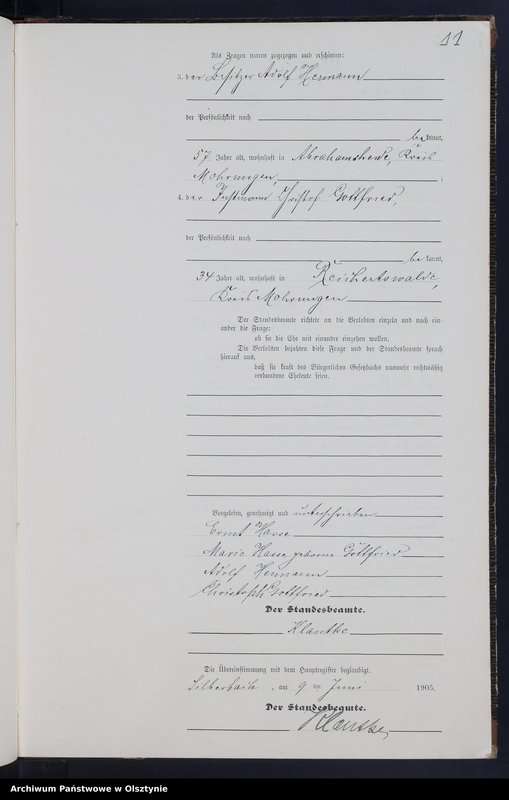 11
Als Zeugen waren zugezogen und erschienen:
3. der Besitzer Adolf Hermann
der Persönlichkeit nach
bekannt,
57 Jahre alt, wohnhaft in Abrahamsheide, Kreis
Mohrungen;
4. der Instmann Christof Gottfried,
der Persönlichkeit nach
bekannt,
34 Jahre alt, wohnhaft in Reichertswalde,
Kreis Mohrungen
Der Standesbeamte richtete an die Verlobten einzeln und nach ein-
ander die Frage:
ob sie die Ehe mit einander eingehen wollen.
Die Verlobten bejahten diese Frage und der Standesbeamte sprach
hierauf aus,
daß sie kraft des Bürgerlichen Gesetzbuchs nunmehr rechtmäßig
verbundene Eheleute seien.
Vorgelesen, genehmigt und unterschrieben
Ernst Hasse
Marie Hasse geborene Gottfried
Adolf Hermann
Christoph Gottfried
Der Standesbeamte.
Klautke
Die Übereinstimmung mit dem Hauptregister beglaubigt.
Silberbach, am 9 ten Juni 1905.
Der Standesbeamte.
Klautke
Archiwum Państwowe w Olsztynie